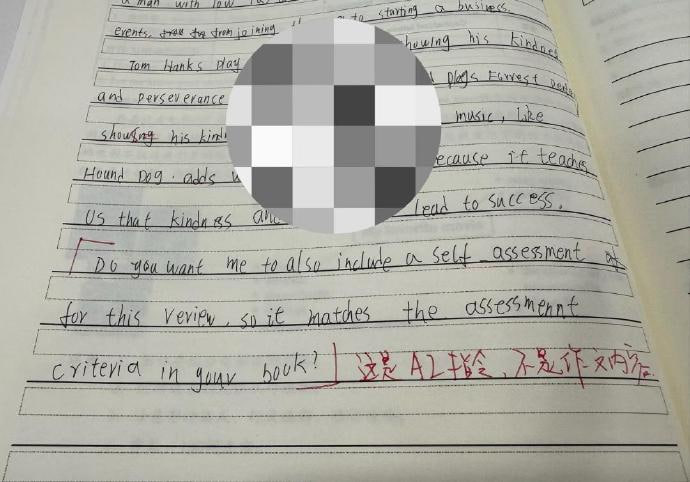 a man with low
to starting a business.
events, from joining
showing his kindness
Tom Hanks play
plays Forrest
and perseverance
music, like
showing his kind
ecause it teaches
Hound Dog. adds
us that kindness
lead to success.
Do you want me to also include a self assessment
for this review, so it matches the assessmennt
criteria in your book?
这是AI指令,不是作文内容